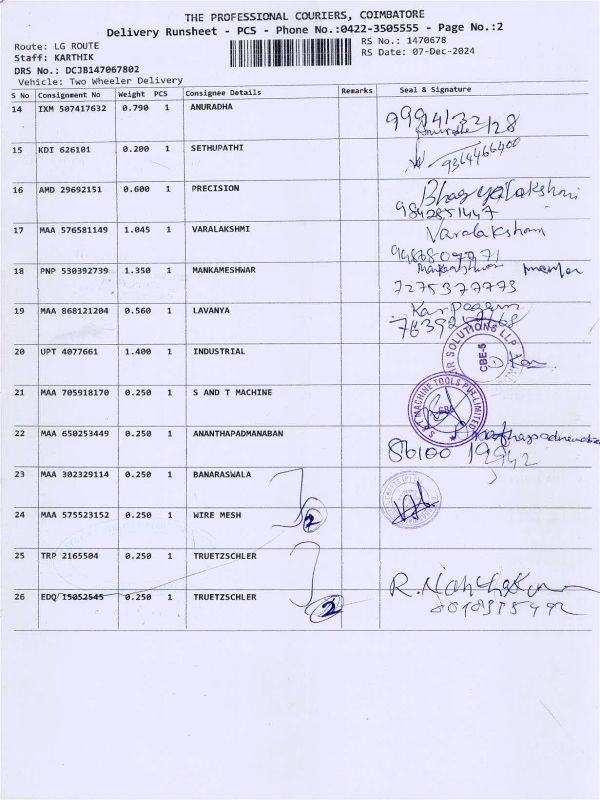 THE PROFESSIONAL COURIERS, COIMBATORE
Delivery Runsheet - PCS - Phone No.:0422-3505555 - Page No.:2
Route: LG ROUTE RS No.: 1470678
Staff: KARTHIK RS Date: 07-Dec-2024
DRS No.: DCJB147067802
Vehicle: Two Wheeler Delivery
S No Consignment No Weight PCS Consignee Details Remarks Seal & Signature
14 IXM 507417632 0.790 1 ANURADHA
15 KDI 626101 0.200 1 SETHUPATHI
9364466400
16 AMD 29692151 0.600 1 PRECISION Bhagyalakshmi
9842851447
17 MAA 576581149 1.045 1 VARALAKSHMI Varalaksham
18 PNP 530392739 1.350 1 MANKAMESHWAR Mankameshwar
7275377773
19 MAA 868121204 0.560 1 LAVANYA Karpagam
20 UPT 4077661 1.400 1 INDUSTRIAL SOLUTIONS LLP CBE-5
21 MAA 705918170 0.250 1 S AND T MACHINE S & T MACHINE TOOLS PVT.LIMITED
22 MAA 650253449 0.250 1 ANANTHAPADMANABAN
86100 19942
23 MAA 302329114 0.250 1 BANARASWALA
24 MAA 575523152 0.250 1 WIRE MESH 2
25 TRP 2165504 0.250 1 TRUETZSCHLER
26 EDQ 15052545 0.250 1 TRUETZSCHLER 2